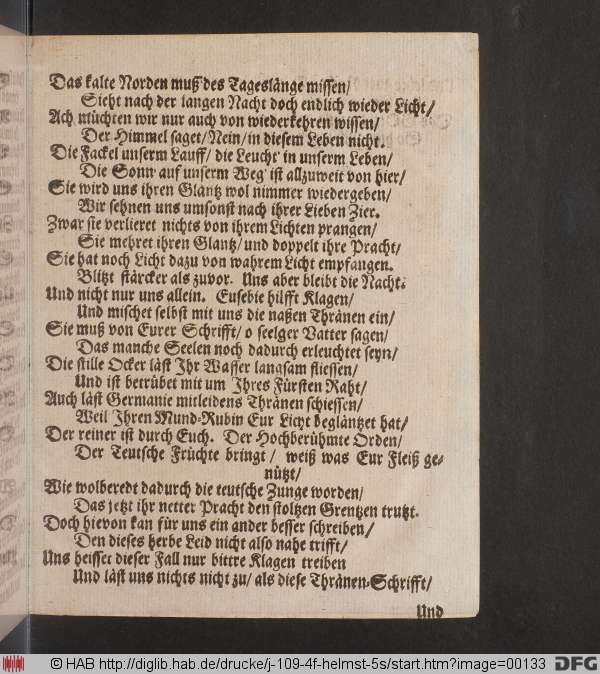 Das kalte Norden muß des Tageslänge missen/
Sieht nach der langen Nacht doch endlich wieder Licht/
Ach müchten wir nur auch von wiederkehren wissen/
Der Himmel saget/Nein/in diesem Leben nicht.
Die Fackel unserm Lauff/ die Leucht' in unserm Leben/
Die Sonn' auf unserm Weg' ist allzuweit von hier/
Sie wird uns ihren Glantz wol nimmer wiedergeben/
Wir sehnen uns umsonst nach ihrer Lieben Zier.
Zwar sie verlieret nichts von ihrem Lichten prangen/
Sie mehret ihren Glantz/ und doppelt ihre Pracht/
Sie hat noch Licht dazu von wahrem Licht empfangen.
Blitzt stärcker als zuvor. Uns aber bleibt die Nacht.
Und nicht nur uns allein. Eusebie hilfft Klagen/
Und mischet selbst mit uns die naßen Thränen ein/
Sie muß von Eurer Schrifft/ o seelger Vatter sagen/
Das manche Seelen noch dadurch erleuchtet seyn/
Die stille Ocker läst Jhr Wasser langsam fliessen/
Und ist betrübet mit um Jhres Fürsten Raht/
Auch läst Germanie mitleidens Thränen schiessen/
Weil Jhren Mund-Rubin Eur Licht begläntzet hat/
Der reiner ist durch Euch. Der Hochberühmte Orden/
Der Teutsche Früchte bringt / weiß was Eur Fleiß ge-
nützt/
Wie wolberedt dadurch die teutsche Zunge worden/
Das jetzt ihr netter Pracht den stoltzen Grentzen trutzt.
Doch hievon kan für uns ein ander besser schreiben/
Den dieses herbe Leid nicht also nahe trifft/
Uns heisset dieser Fall nur bittre Klagen treiben
Und läst uns nichts nicht zu/ als diese Thränen-Schrifft/
Und
© HAB http://diglib.hab.de/drucke/j-109-4f-helmst-5s/start.htm?image=00133
DFG